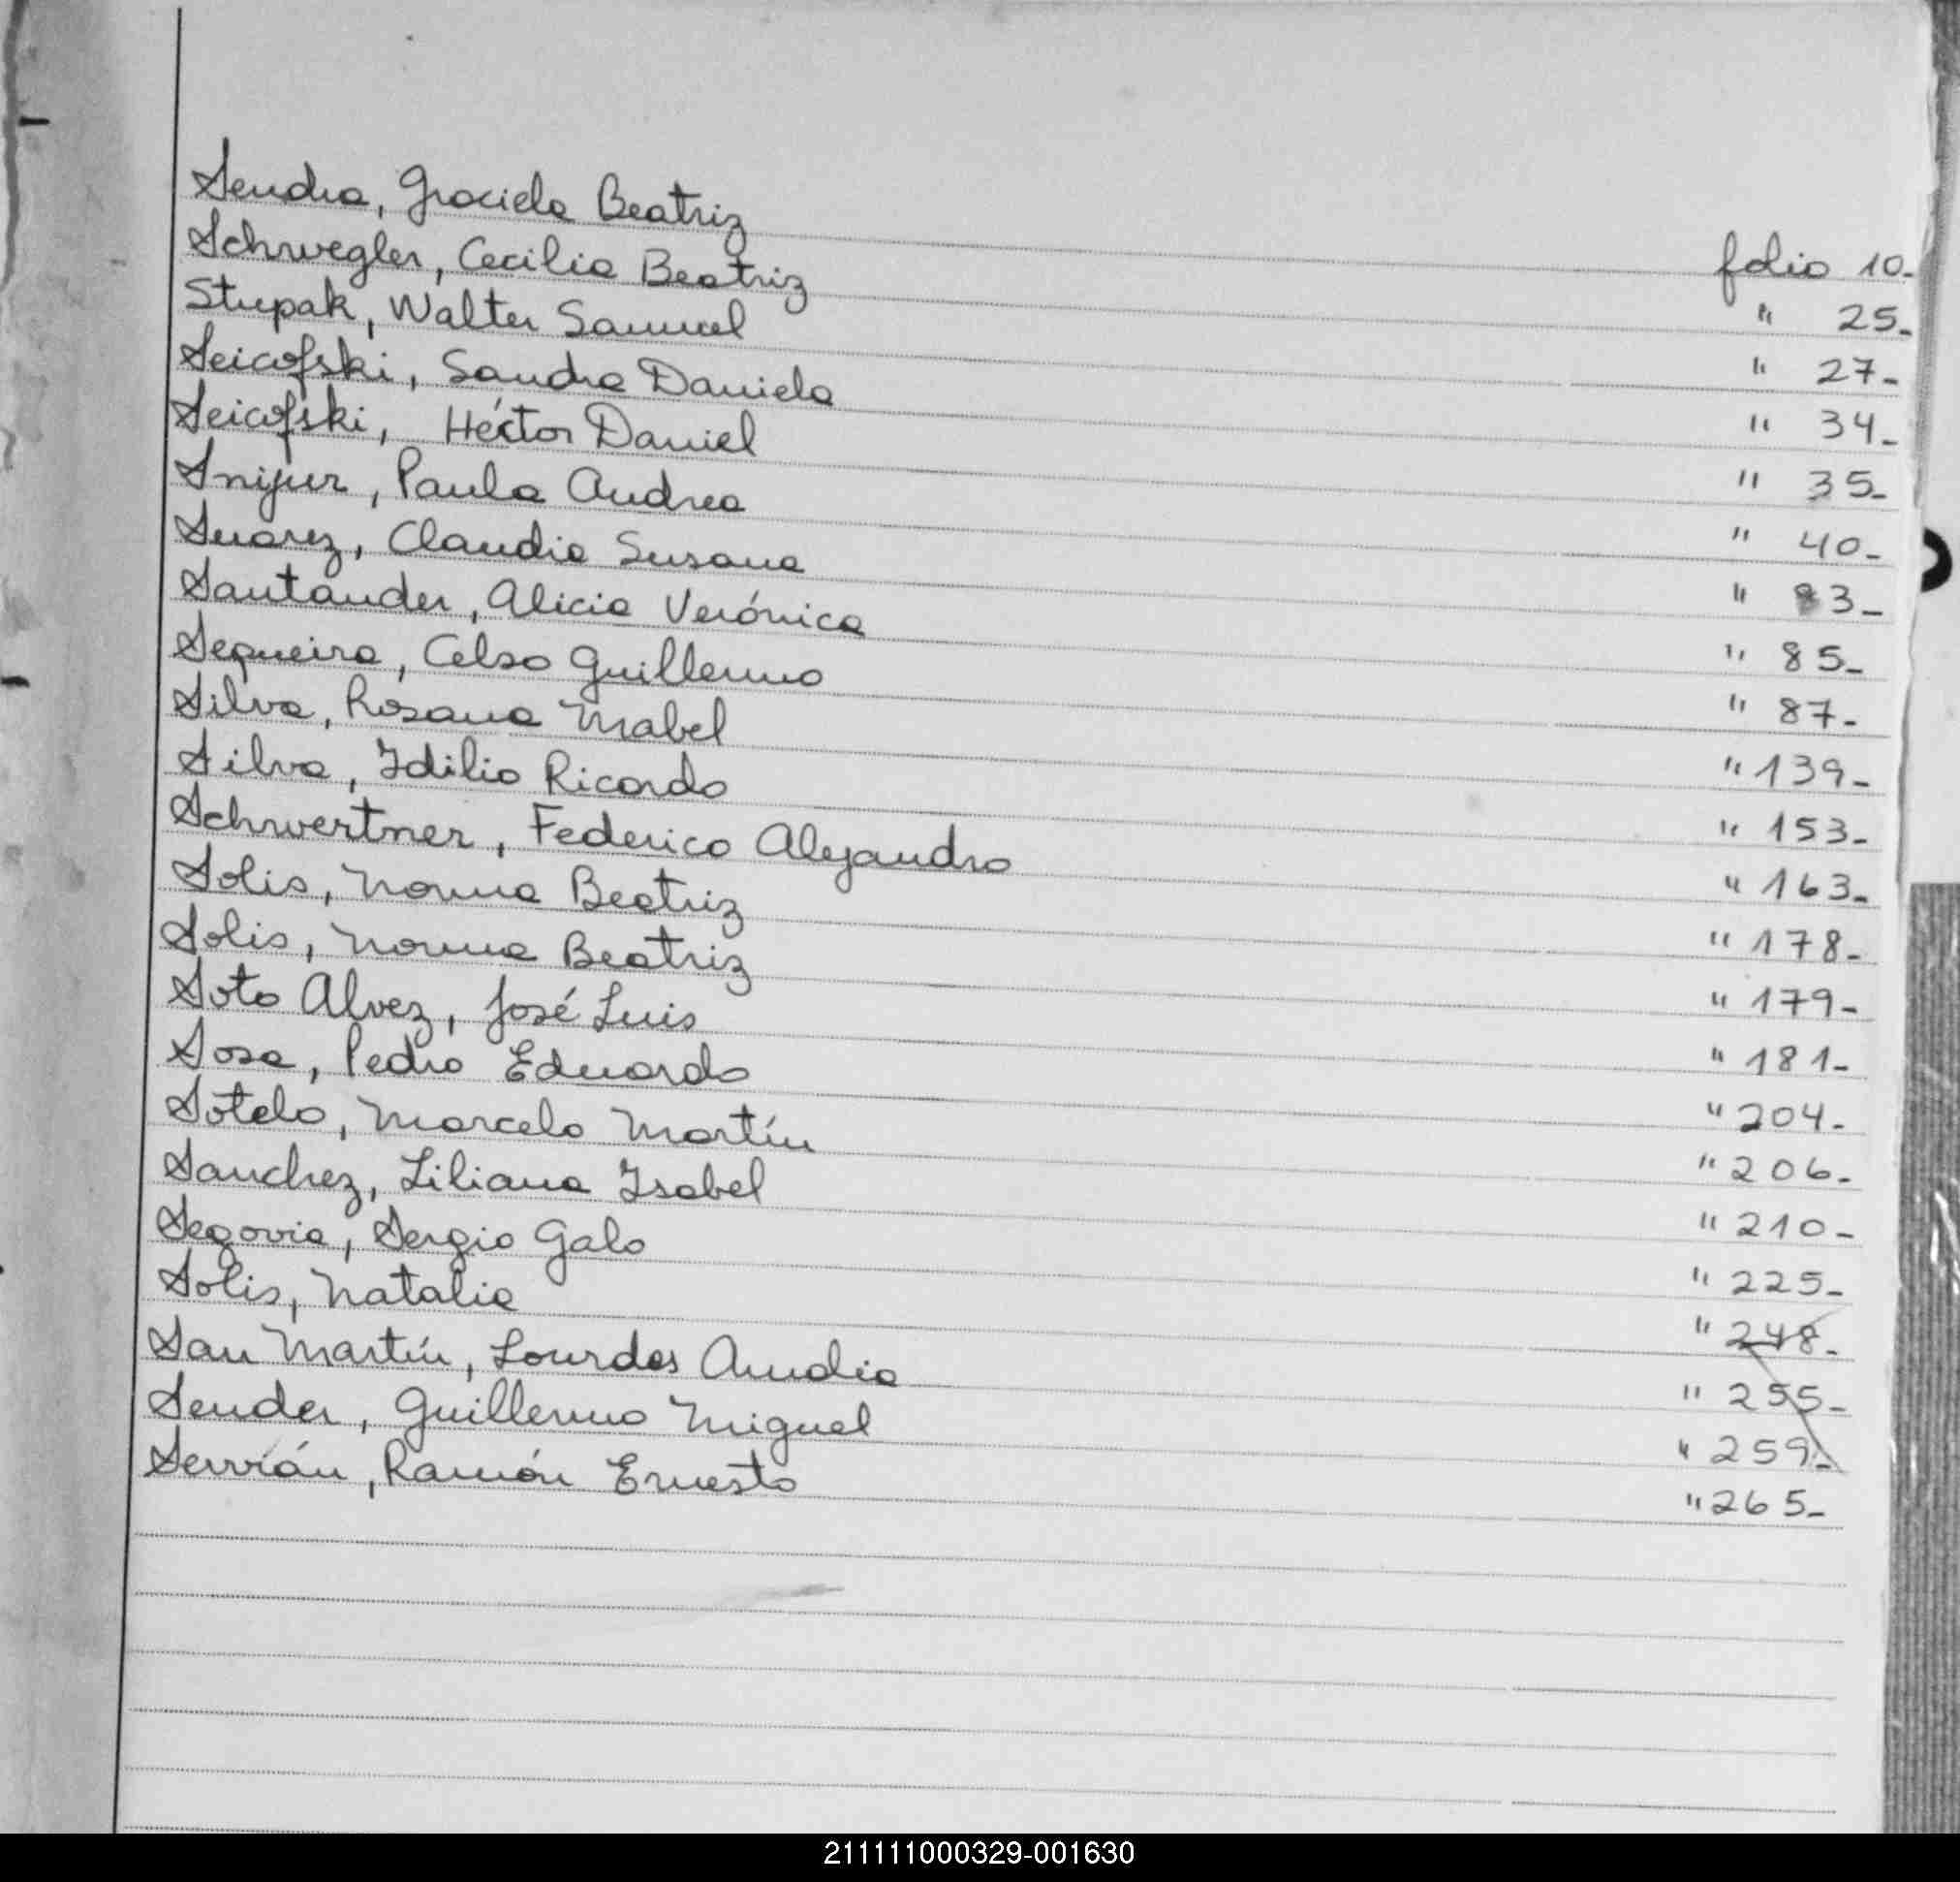 Sendra, Graciela Beatriz folio 10-
Schwegler, Cecilia Beatriz " 25-
Stupak, Walter Samuel " 27-
Seicofski, Sandra Daniela " 34-
Seicofski, Héctor Daniel " 35-
Snijur, Paula Andrea " 40-
Suarez, Claudia Susana " 83-
Santander, Alicia Verónica " 85-
Sequeira, Celso Guillermo " 87-
Silva, Rosana Mabel " 139-
Silva, Idilio Ricardo " 153-
Schwertner, Federico Alejandro " 163-
Solis, Norma Beatriz " 178-
Solis, Norma Beatriz " 179-
Soto Alvez, José Luis " 181-
Sosa, Pedro Eduardo " 204-
Sotelo, Marcelo Martín " 206-
Sanchez, Liliana Isabel " 210-
Segovia, Sergio Galo " 225-
Solis, Natalia " 248-
San Martín, Lourdes Amalia " 255-
Sender, Guillermo Miguel " 259-
Servián, Ramón Ernesto " 265-
211111000329-001630